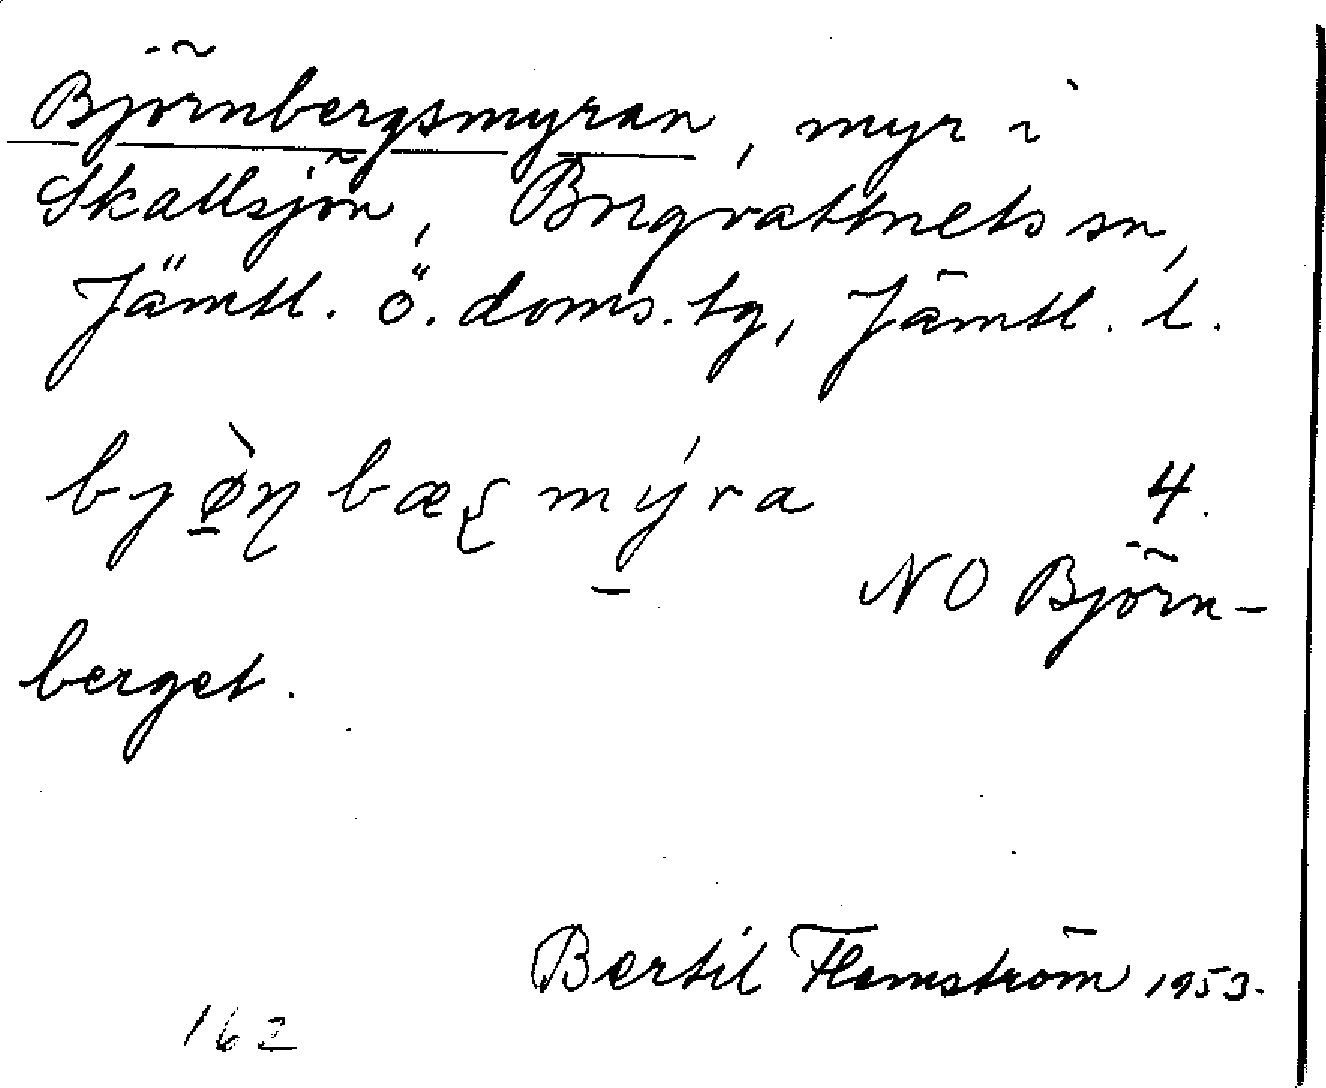 Björnbergsmyran, myr i
Skallsjön, Borgvattnets sn,
Jämtl. ö. doms. tg, Jämtl. l.
mýra 4.
NO Björn-
berget.
Bertil Flemström 1953.
162